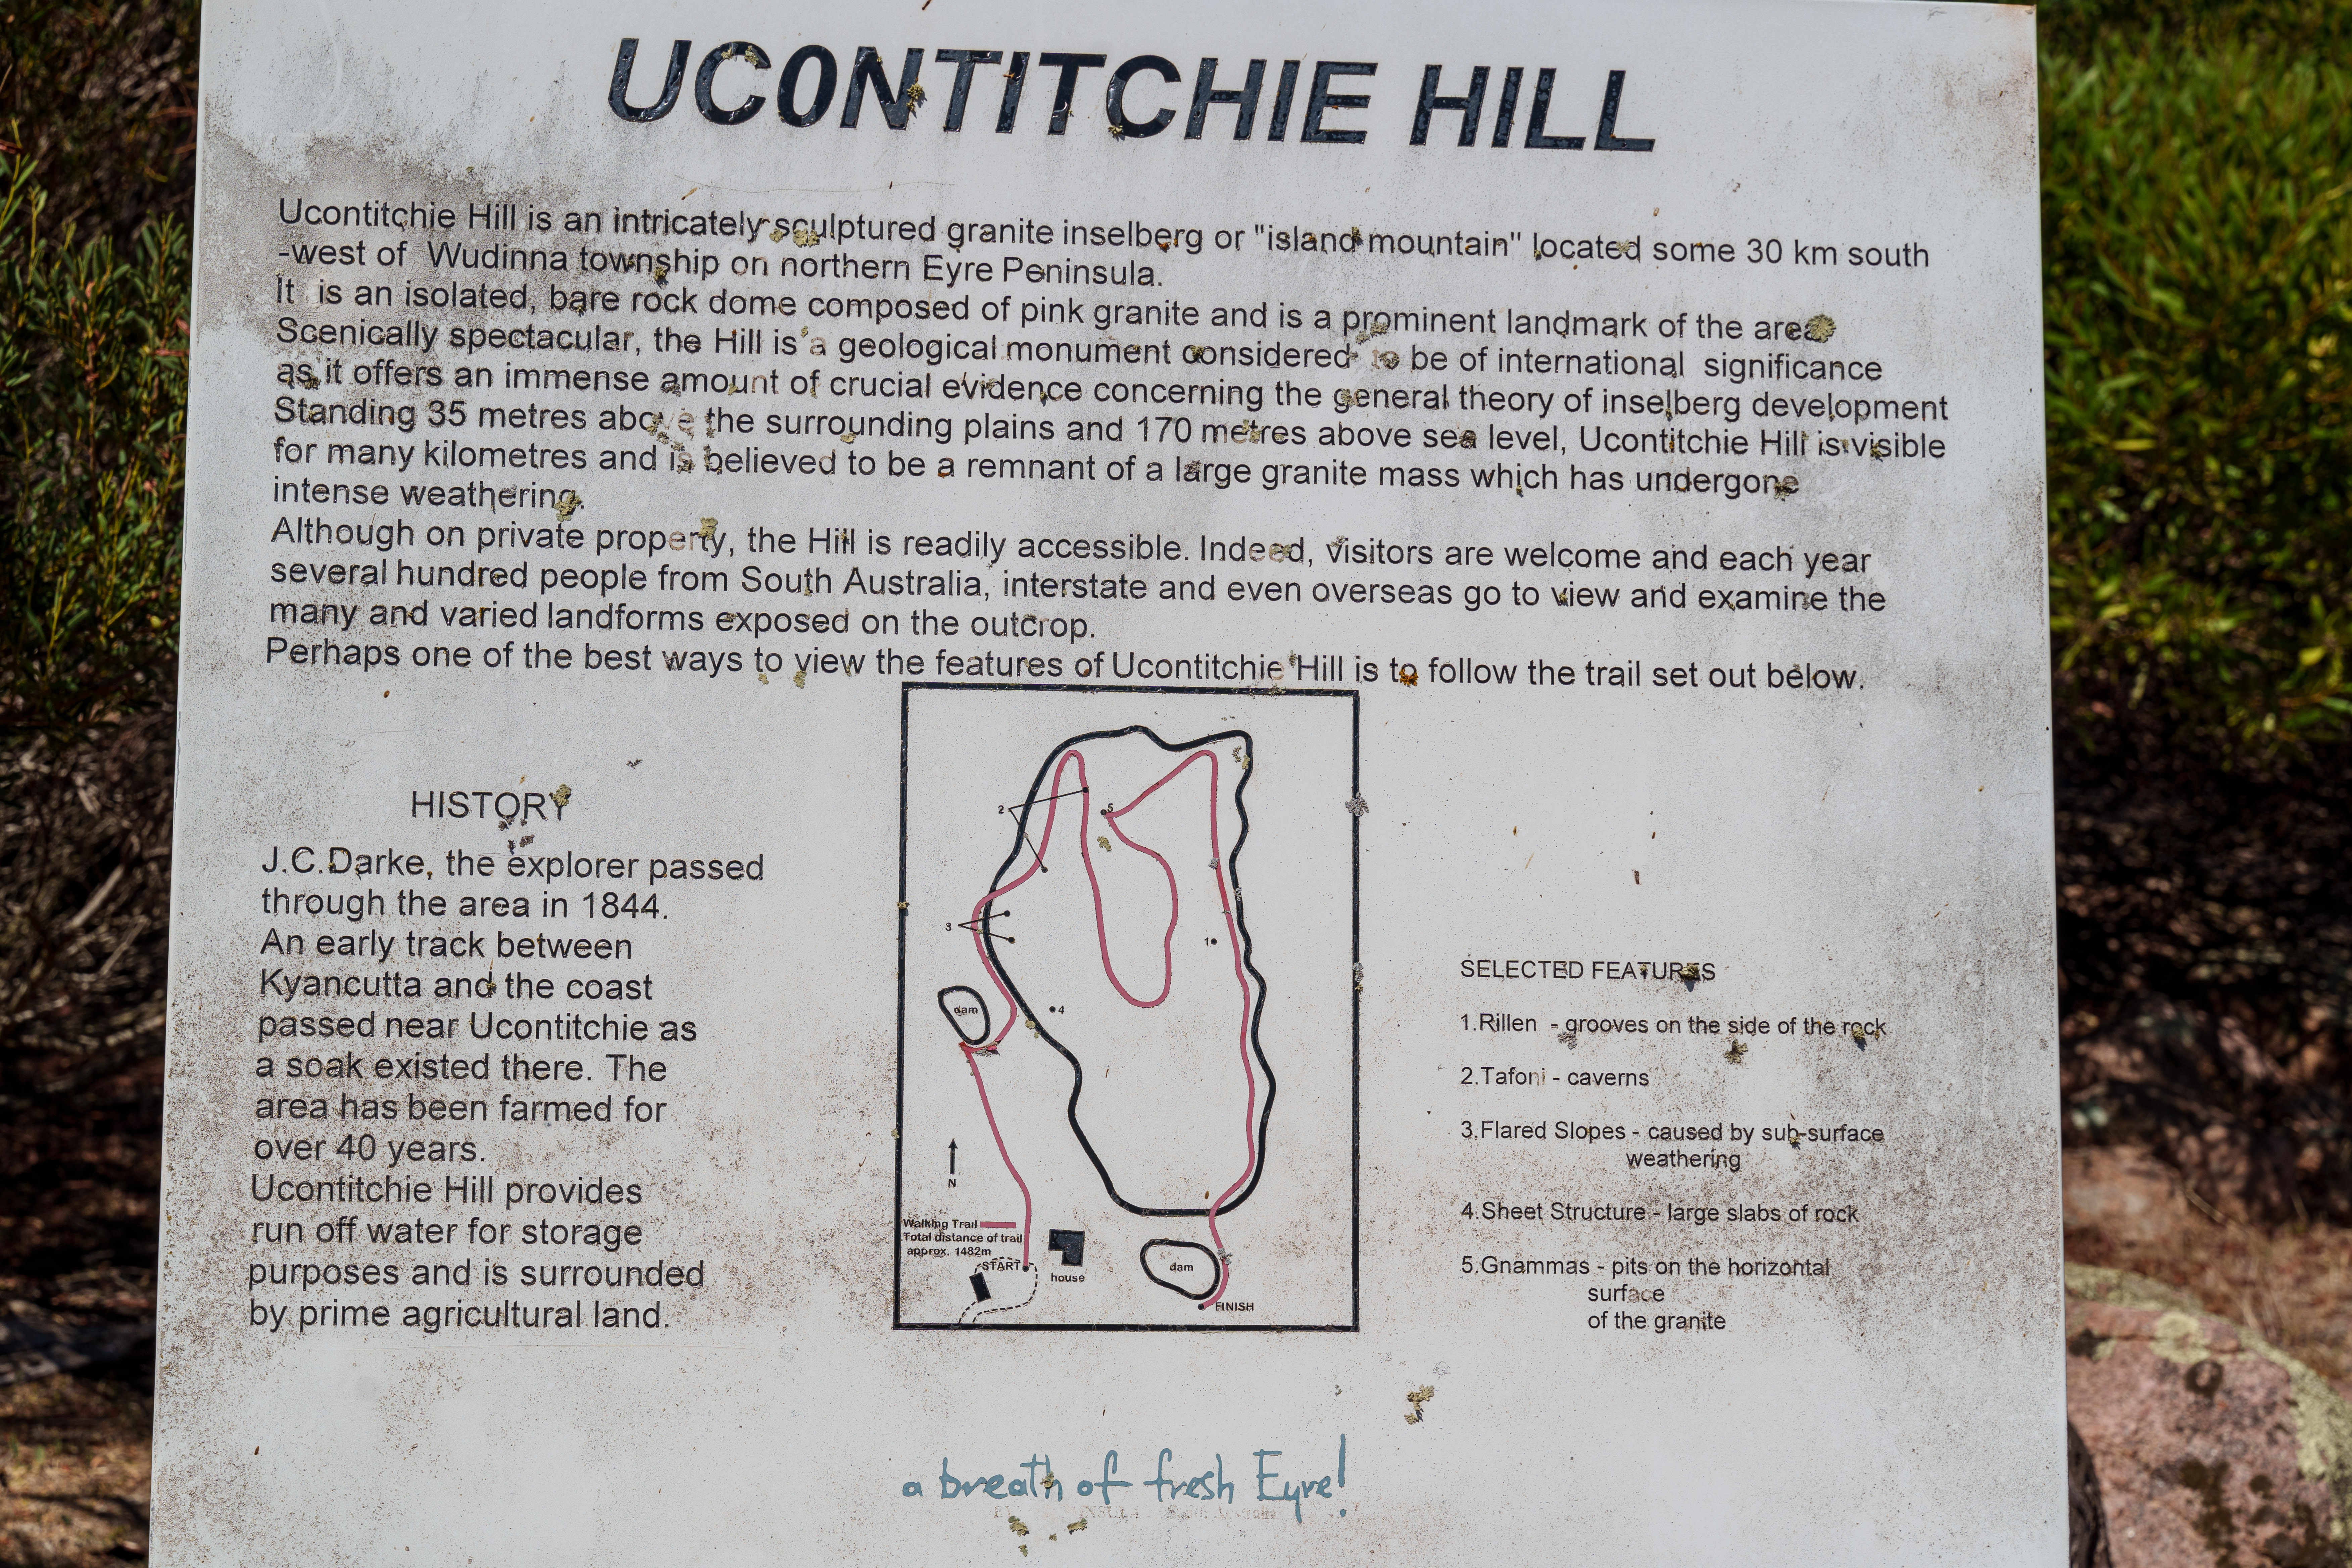 UCONTITCHIE HILL
Ucontitchie Hill is an intricately sculptured granite inselberg or "island mountain" located some 30 km south
-west of Wudinna township on northern Eyre Peninsula.
It is an isolated, bare rock dome composed of pink granite and is a prominent landmark of the area
Scenically spectacular, the Hill is a geological monument considered to be of international significance
as it offers an immense amount of crucial evidence concerning the general theory of inselberg development
Standing 35 metres above the surrounding plains and 170 metres above sea level, Ucontitchie Hill is visible
for many kilometres and is believed to be a remnant of a large granite mass which has undergone
intense weathering.
Although on private property, the Hill is readily accessible. Indeed, visitors are welcome and each year
several hundred people from South Australia, interstate and even overseas go to view and examine the
many and varied landforms exposed on the outcrop.
Perhaps one of the best ways to view the features of Ucontitchie Hill is to follow the trail set out below.
HISTORY
J.C.Darke, the explorer passed
through the area in 1844.
An early track between
Kyancutta and the coast
passed near Ucontitchie as
a soak existed there. The
area has been farmed for
over 40 years.
Ucontitchie Hill provides
run off water for storage
purposes and is surrounded
by prime agricultural land.
2
5
3
1
4
dam
N
Walking Trail
Total distance of trail
approx. 1482m
START
house
dam
FINISH
SELECTED FEATURES
1.Rillen - grooves on the side of the rock
2.Tafoni - caverns
3.Flared Slopes - caused by sub-surface
weathering
4.Sheet Structure - large slabs of rock
5.Gnammas - pits on the horizontal
surface
of the granite
a breath of fresh Eyre!